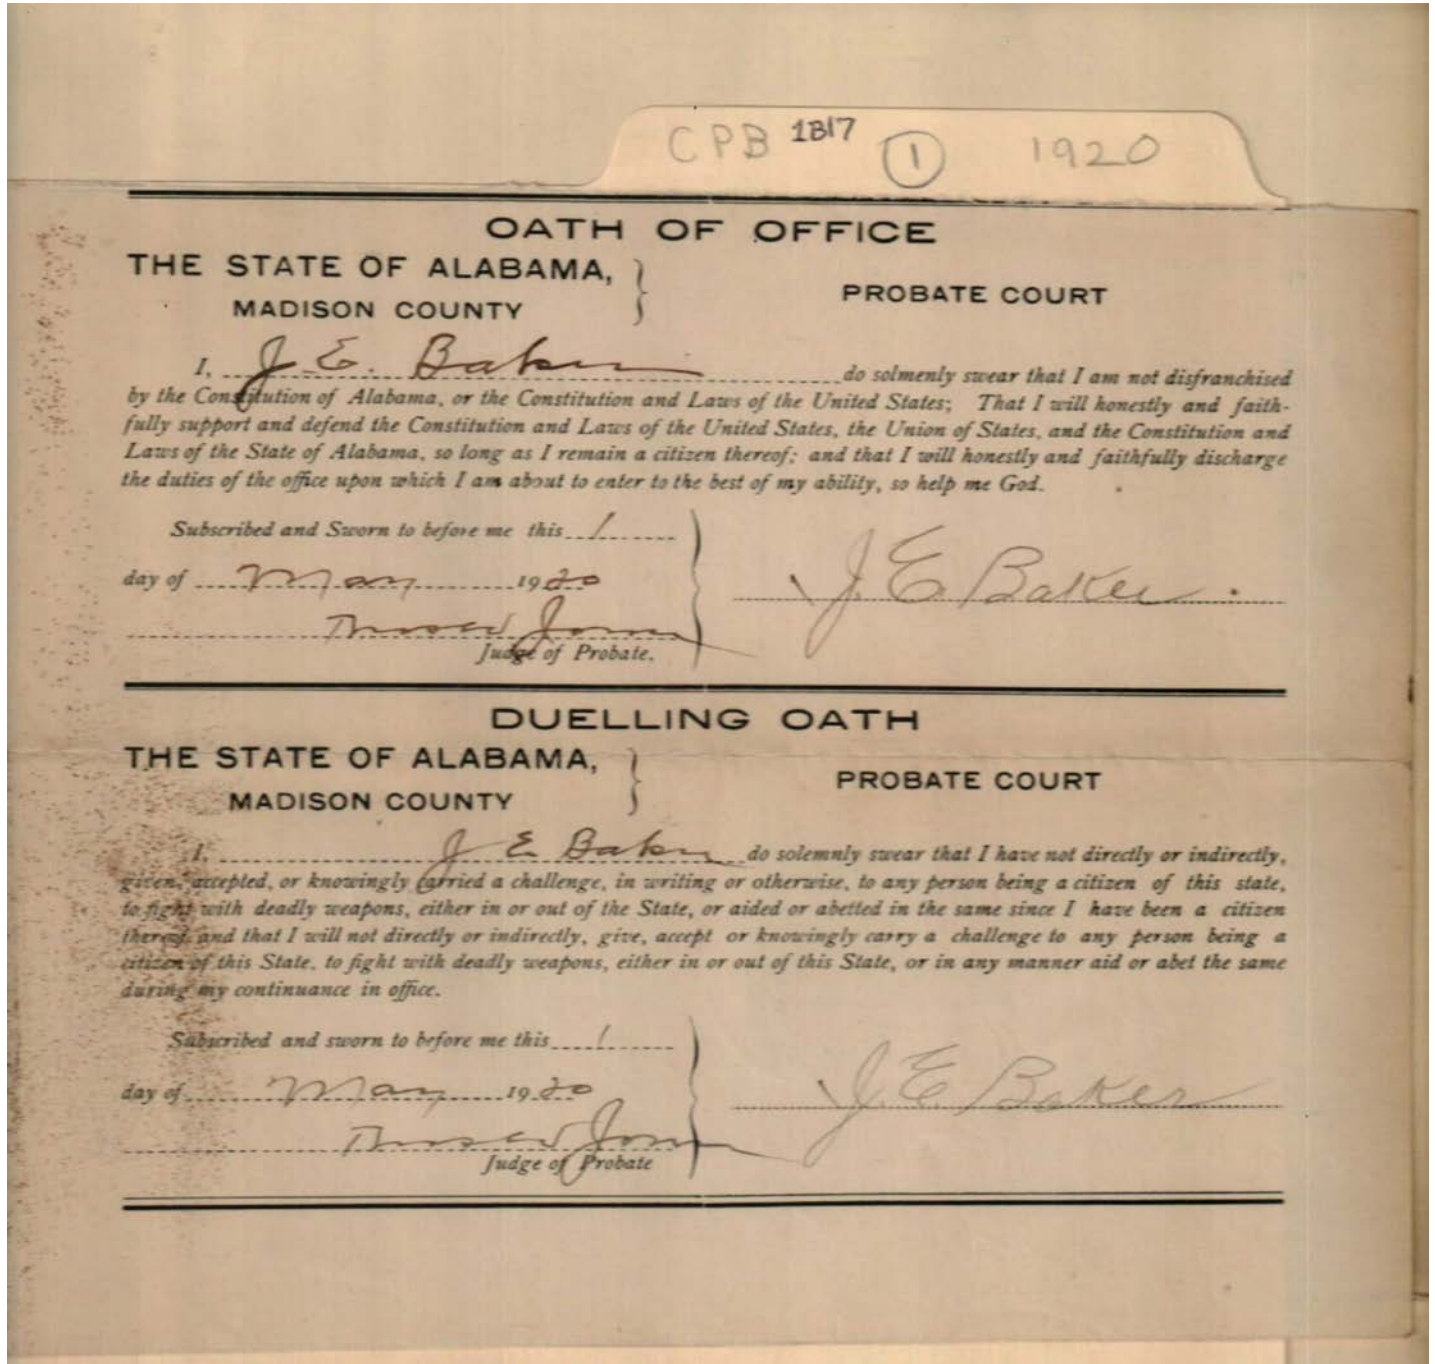 CPB 1B17 1 1920
OATH OF OFFICE
THE STATE OF ALABAMA,
MADISON COUNTY
PROBATE COURT
I, J. E. Baker do solmenly swear that I am not disfranchised
by the Constitution of Alabama, or the Constitution and Laws of the United States; That I will honestly and faith-
fully support and defend the Constitution and Laws of the United States, the Union of States, and the Constitution and
Laws of the State of Alabama, so long as I remain a citizen thereof; and that I will honestly and faithfully discharge
the duties of the office upon which I am about to enter to the best of my ability, so help me God.
Subscribed and Sworn to before me this 1
day of May 1920
J. E. Baker.
Thos W Jones
Judge of Probate.
DUELLING OATH
THE STATE OF ALABAMA,
MADISON COUNTY
PROBATE COURT
I, J E Baker do solemnly swear that I have not directly or indirectly,
given, accepted, or knowingly carried a challenge, in writing or otherwise, to any person being a citizen of this state,
to fight with deadly weapons, either in or out of the State, or aided or abetted in the same since I have been a citizen
thereof and that I will not directly or indirectly, give, accept or knowingly carry a challenge to any person being a
citizen of this State, to fight with deadly weapons, either in or out of this State, or in any manner aid or abet the same
during my continuance in office.
Subscribed and sworn to before me this 1
day of May 1920
J. E. Baker
Thos W Jones
Judge of Probate